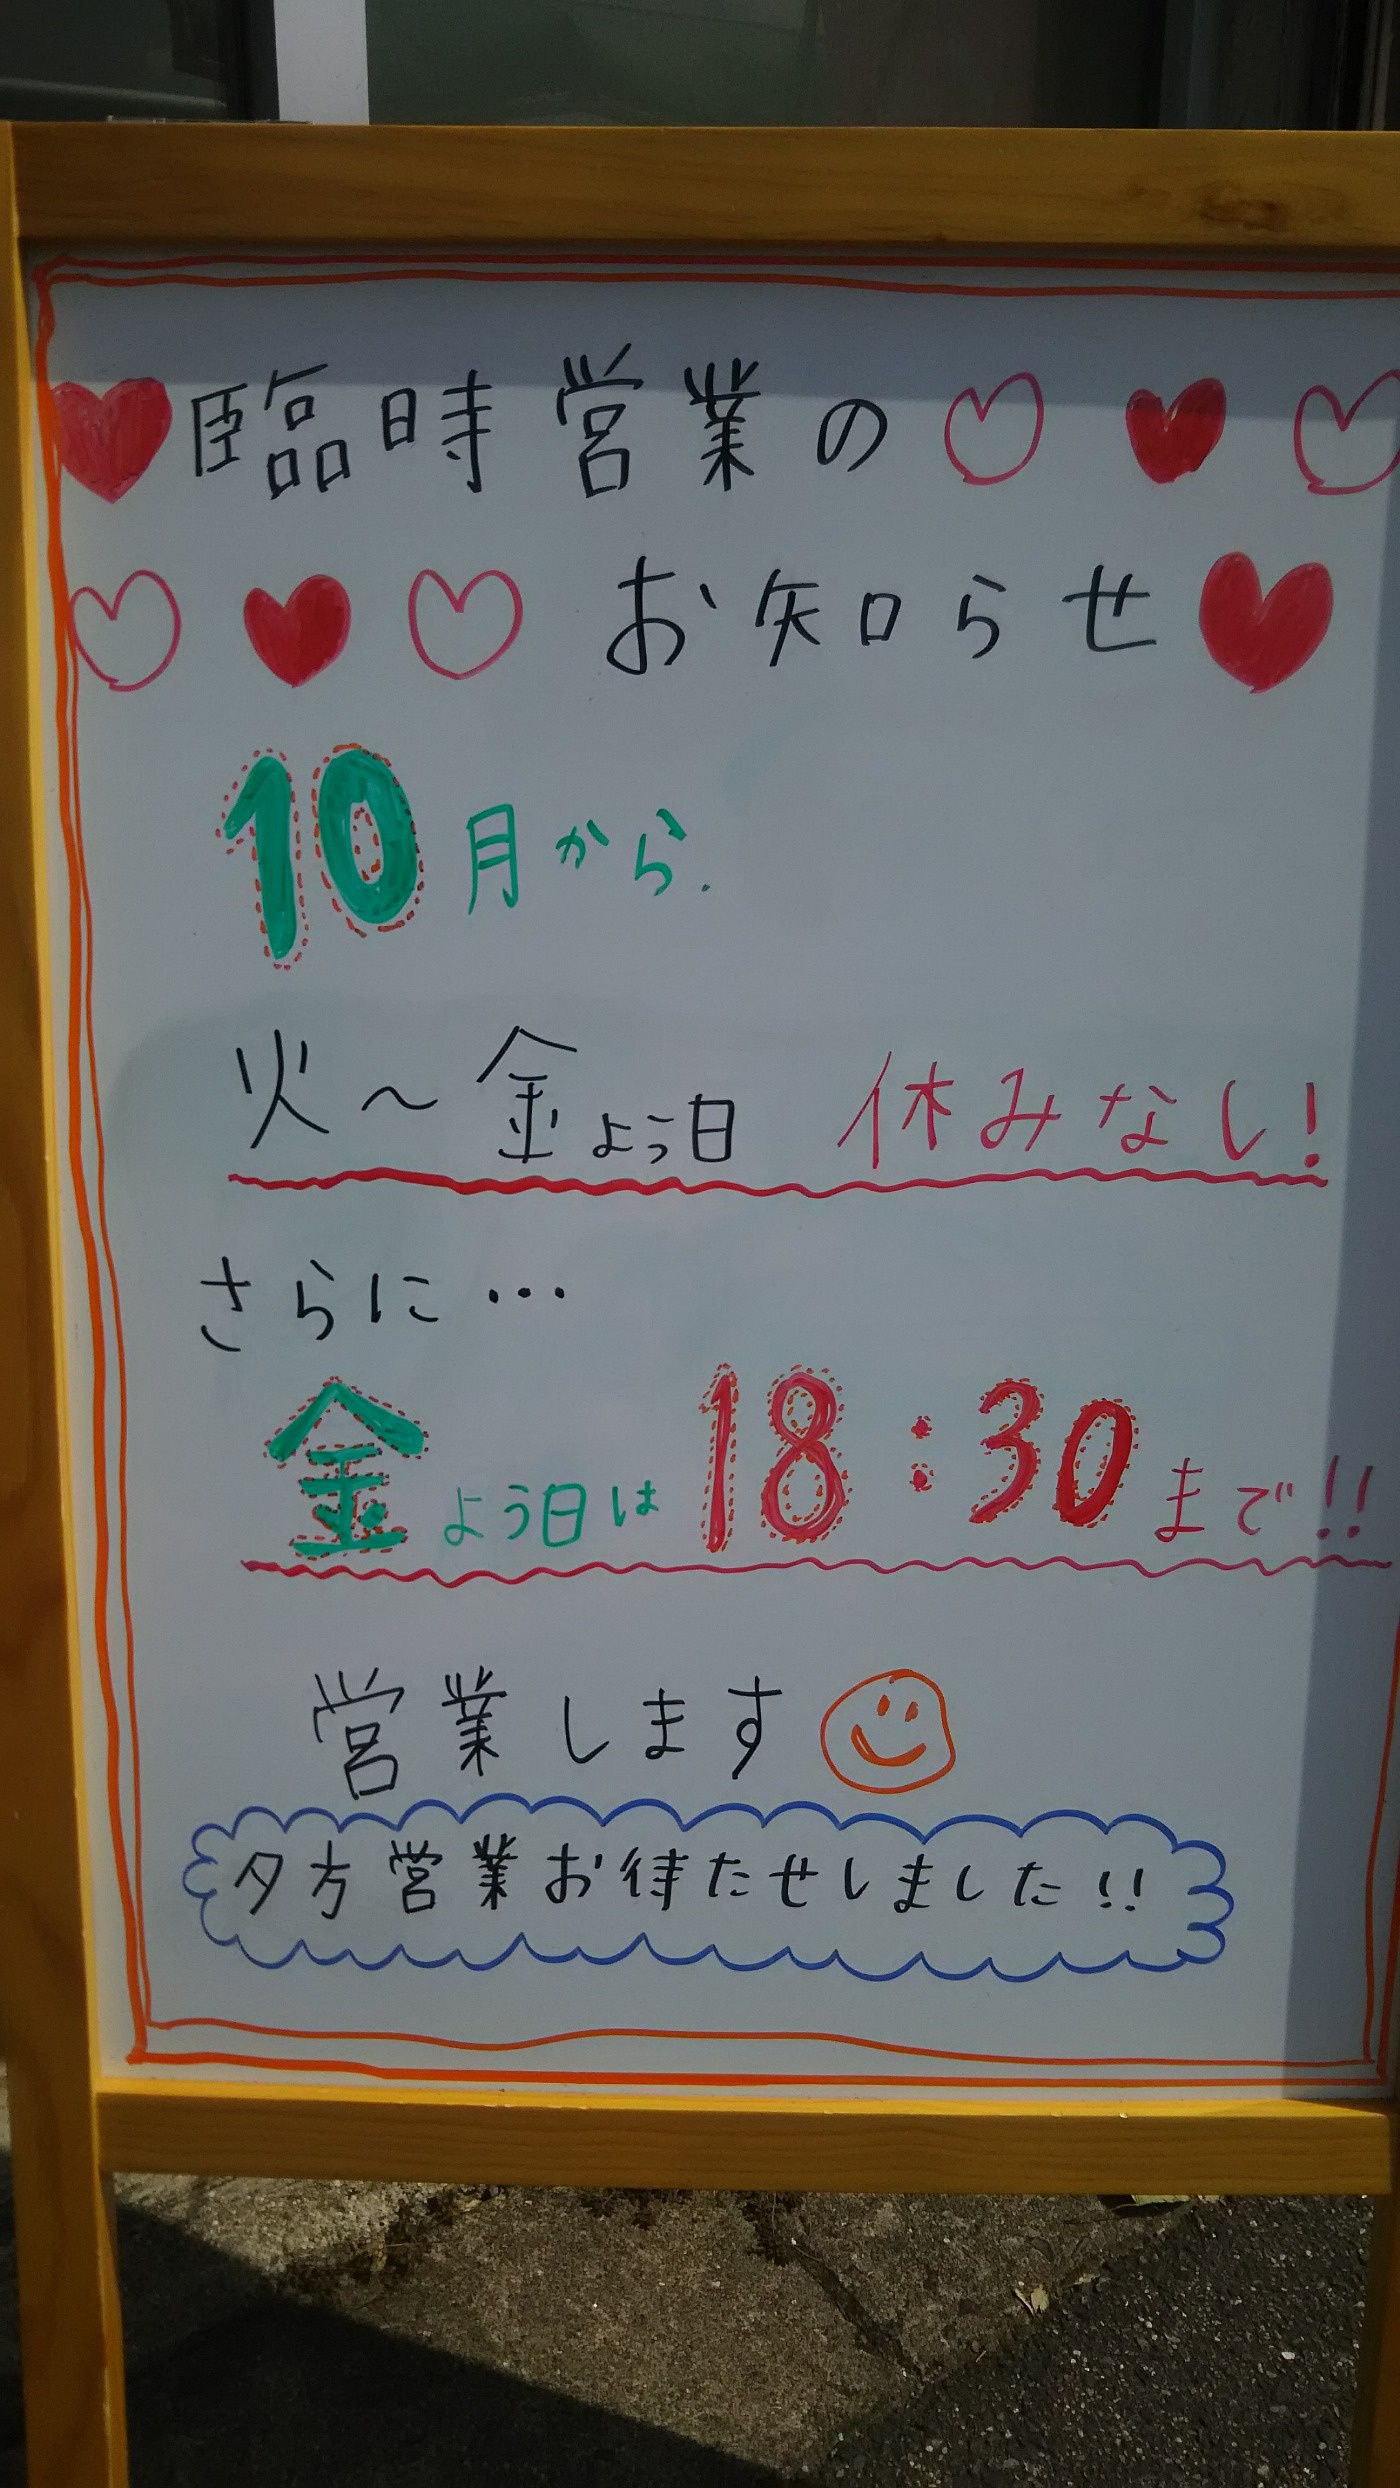 臨時営業の
お知らせ
10月から.
火～金よう日 休みなし!
さらに…
金よう日は18:30まで!!
営業します
夕方営業お待たせしました!!